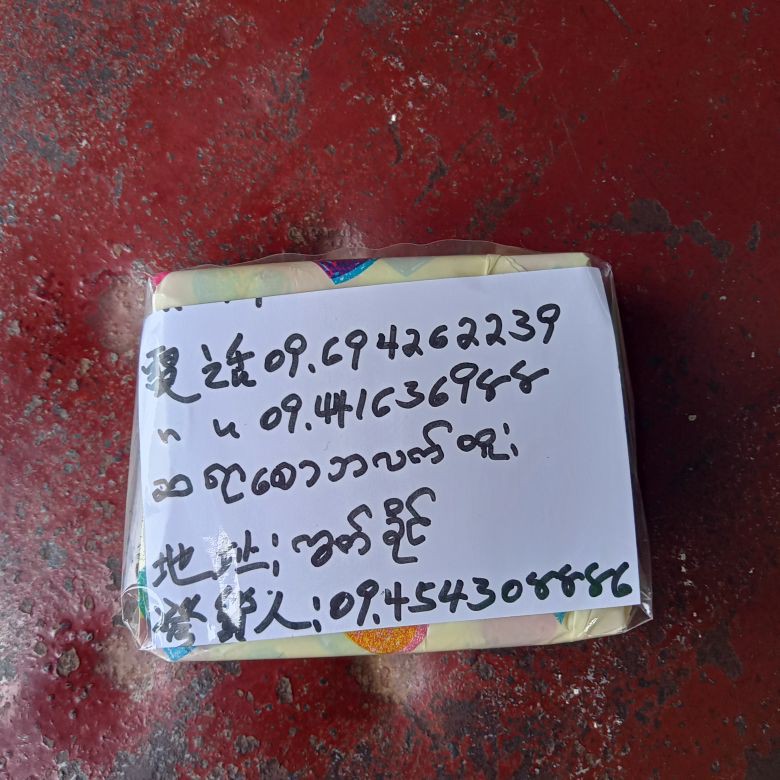 電話 09.694262239
" " 09.441636988
ဆရာစောဘလက်ထူး
地址; ကွတ်ခိုင်
發貨人; 09.454308886